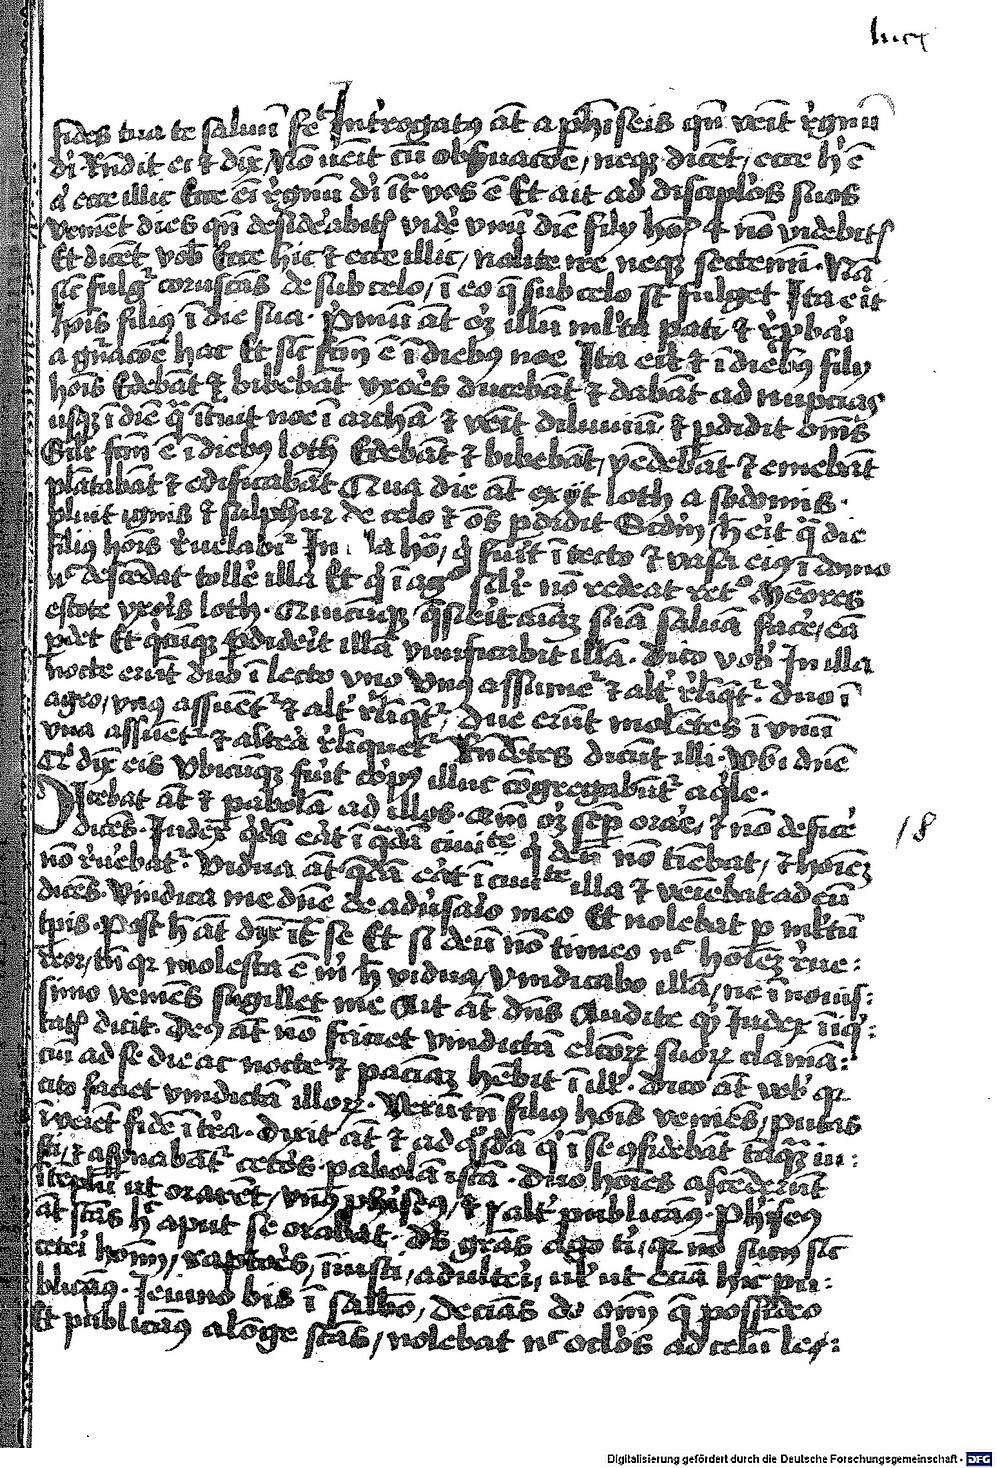 lucx
fides tua te saluū fec̄ Int̓rogatꝯ aūt a phīseis qn̄ veīt r̓gnū
di̓ Rn̄dit ei ⁊ dix̓ / Nō ueīt cū obs̓uacōe / neqꝫ dicēt / ecce h̓ ē
a̓ ecce illic Ecce eī r̓gnū di̓ īt̄ vos ē Et ait ad discip̓los suos
venīent dies qn̄ desid̓eabitis vid̓e vnū diē filij ho̓is ⁊ nō videbitis
Et dicēt vob̓ Ecce hic ⁊ ecce illic / nolite ire neqꝫ sectemi̓. Nā
sic̄ fulgr̓ coruscās de sub celo / ī eo q̄ sub celo st̄ fulget Ita eīt
hōis filiꝯ ī die sua. P̓mū aūt oꝫ illū ml̓ta pati ⁊ r̓pba̓i
a gn̓acōe hac Et sic̄ fc̄m ē ī diebꝯ noe Ita eīt ⁊ ī diebꝯ filij
hōis Edebāt ⁊ bibebāt vxor̓es ducebāt ⁊ dabāt ad nupcias
usqꝫ ī diē q̄ īt̓uit noe ī archā ⁊ venīt diluuiū ⁊ pdidit om̄s
Silr̓ fc̄m ē ī diebꝯ loth Edebāt ⁊ bibebāt / vēdebāt ⁊ emebāt
plātabāt ⁊ edificabāt Qua die aūt exijt loth a sodomis.
pluit ignis ⁊ sulphur de celo ⁊ oēs pdidit Scdm̄ h̄ eīt q̄ die
filiꝯ hōis r̓uelabit̓ In la ho̓a / q̓ fu̓it ī tecto ⁊ vasa eiꝯ ī domo
nc̄ descēdat toll̓e illa Et q̓ ī ag̓o silr̓ nō redeat ret̓o Meōres
estote vxor̓is loth. Quicūqꝫ q̄sie̓it aīaꝫ suā saluā fac̓e / eā
pdet Et q̓cūqꝫ pdide̓it illā viuificabit illā. Dico vob̓ In illa
nocte erūt duo ī lecto vno vnꝯ assumet̓ ⁊ alt̓ r̓liqt̓. duo ī
agro / vnꝯ assūet̓ ⁊ alt̓ r̓liqt̓ / due erūt molētes ī vnū
vna assūet̓ ⁊ alt̓a r̓liquet̓ Rn̄dētes dicūt illi. Vbi dn̄e
Q̓ dix̓ eis Vbicūqꝫ fu̓it corpꝯ illuc cōgregabūt̓ aq̓le.
Dicebat aūt ⁊ pabolā ad illos. Qm̄ oꝫ semp orar̓e / ⁊ nō defic̓e
dicēs. Iudex q̓dā e̓at ī q̄dā ciuite q̓ deū nō tīebat / ⁊ hoīeꝫ
nō r̓uebat̓. Vidua aūt q̄dā e̓at ī ciuite illa ⁊ veīebat ad eū
dicēs. Vindica me dn̄e de adu̓saio meo Et nolebat p ml̓tū
tpis. Post h̄ aūt dix̓ īt̄ se Et si deū nō timeo nc̄ hoīeꝫ r̓ue:
reor / tn̄ qr molesta ē m̓ h̄ vidua / vindicabo illā / ne ī nouis:
simo veniēs sugillet me Ait aūt dn̄s Audite q̓ Iudex īiq̓:
tatis dicit. Deꝯ aūt nō faciet vindictā elcōꝝ suoꝝ clamā:
ciū ad se die ac nocte ⁊ paciaꝫ hēbit ī ill̓. Dico aūt vob̓ qr
cito faciet vindictā illoꝝ. Verūtn̄ filiꝯ hōis veniēs / putas
īueiet fidē ī t̓ra. Dixit aūt ⁊ ad q̓sdā q̓ ī se ꝯfidebāt tāq̄ꝫ iu:
sti / ⁊ asp̓nabāt̓ cet̓os. pabolā istā. Duo hoīes ascederūt
ī teplū ut orarēt / vnꝯ phīseꝯ / ⁊ alt̓ publicaꝯ. Phīseꝯ
aūt stās h̓ aput se orabat. Dꝯ gr̄as ago ti̓ / qr nō sum sic̄
cet̓ei hoīm / raptor̓es / īiusti / adult̓ei / ul̓ ut eciā hic pu:
blicāꝯ. Ieiuno bis ī sabbo / deciās do oīm q̄ possideo
Et publicāꝯ alōge stās / nolebat nc̄ oclos ad celū le:
18
Digitalisierung gefördert durch die Deutsche Forschungsgemeinschaft - DFG